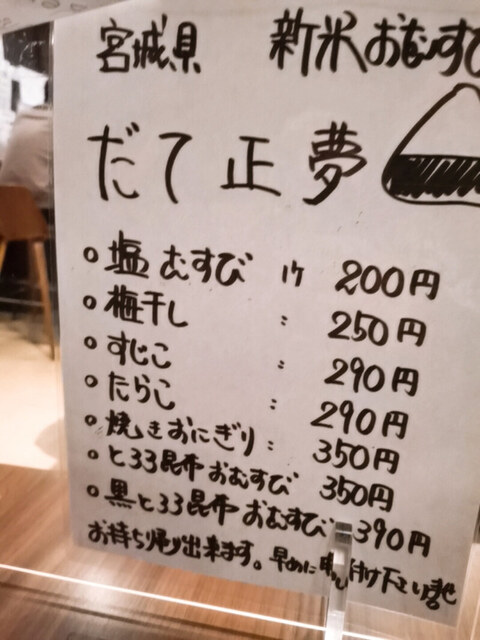 宮城県 新米おむすび
だて正夢
○塩むすび 1ケ 200円
○梅干し : 250円
○すじこ : 290円
○たらこ : 290円
○焼きおにぎり: 350円
○とろろ昆布おむすび 350円
○黒とろろ昆布おむすび 390円
お持ち帰り出来ます。早めに申し付け下さいませ